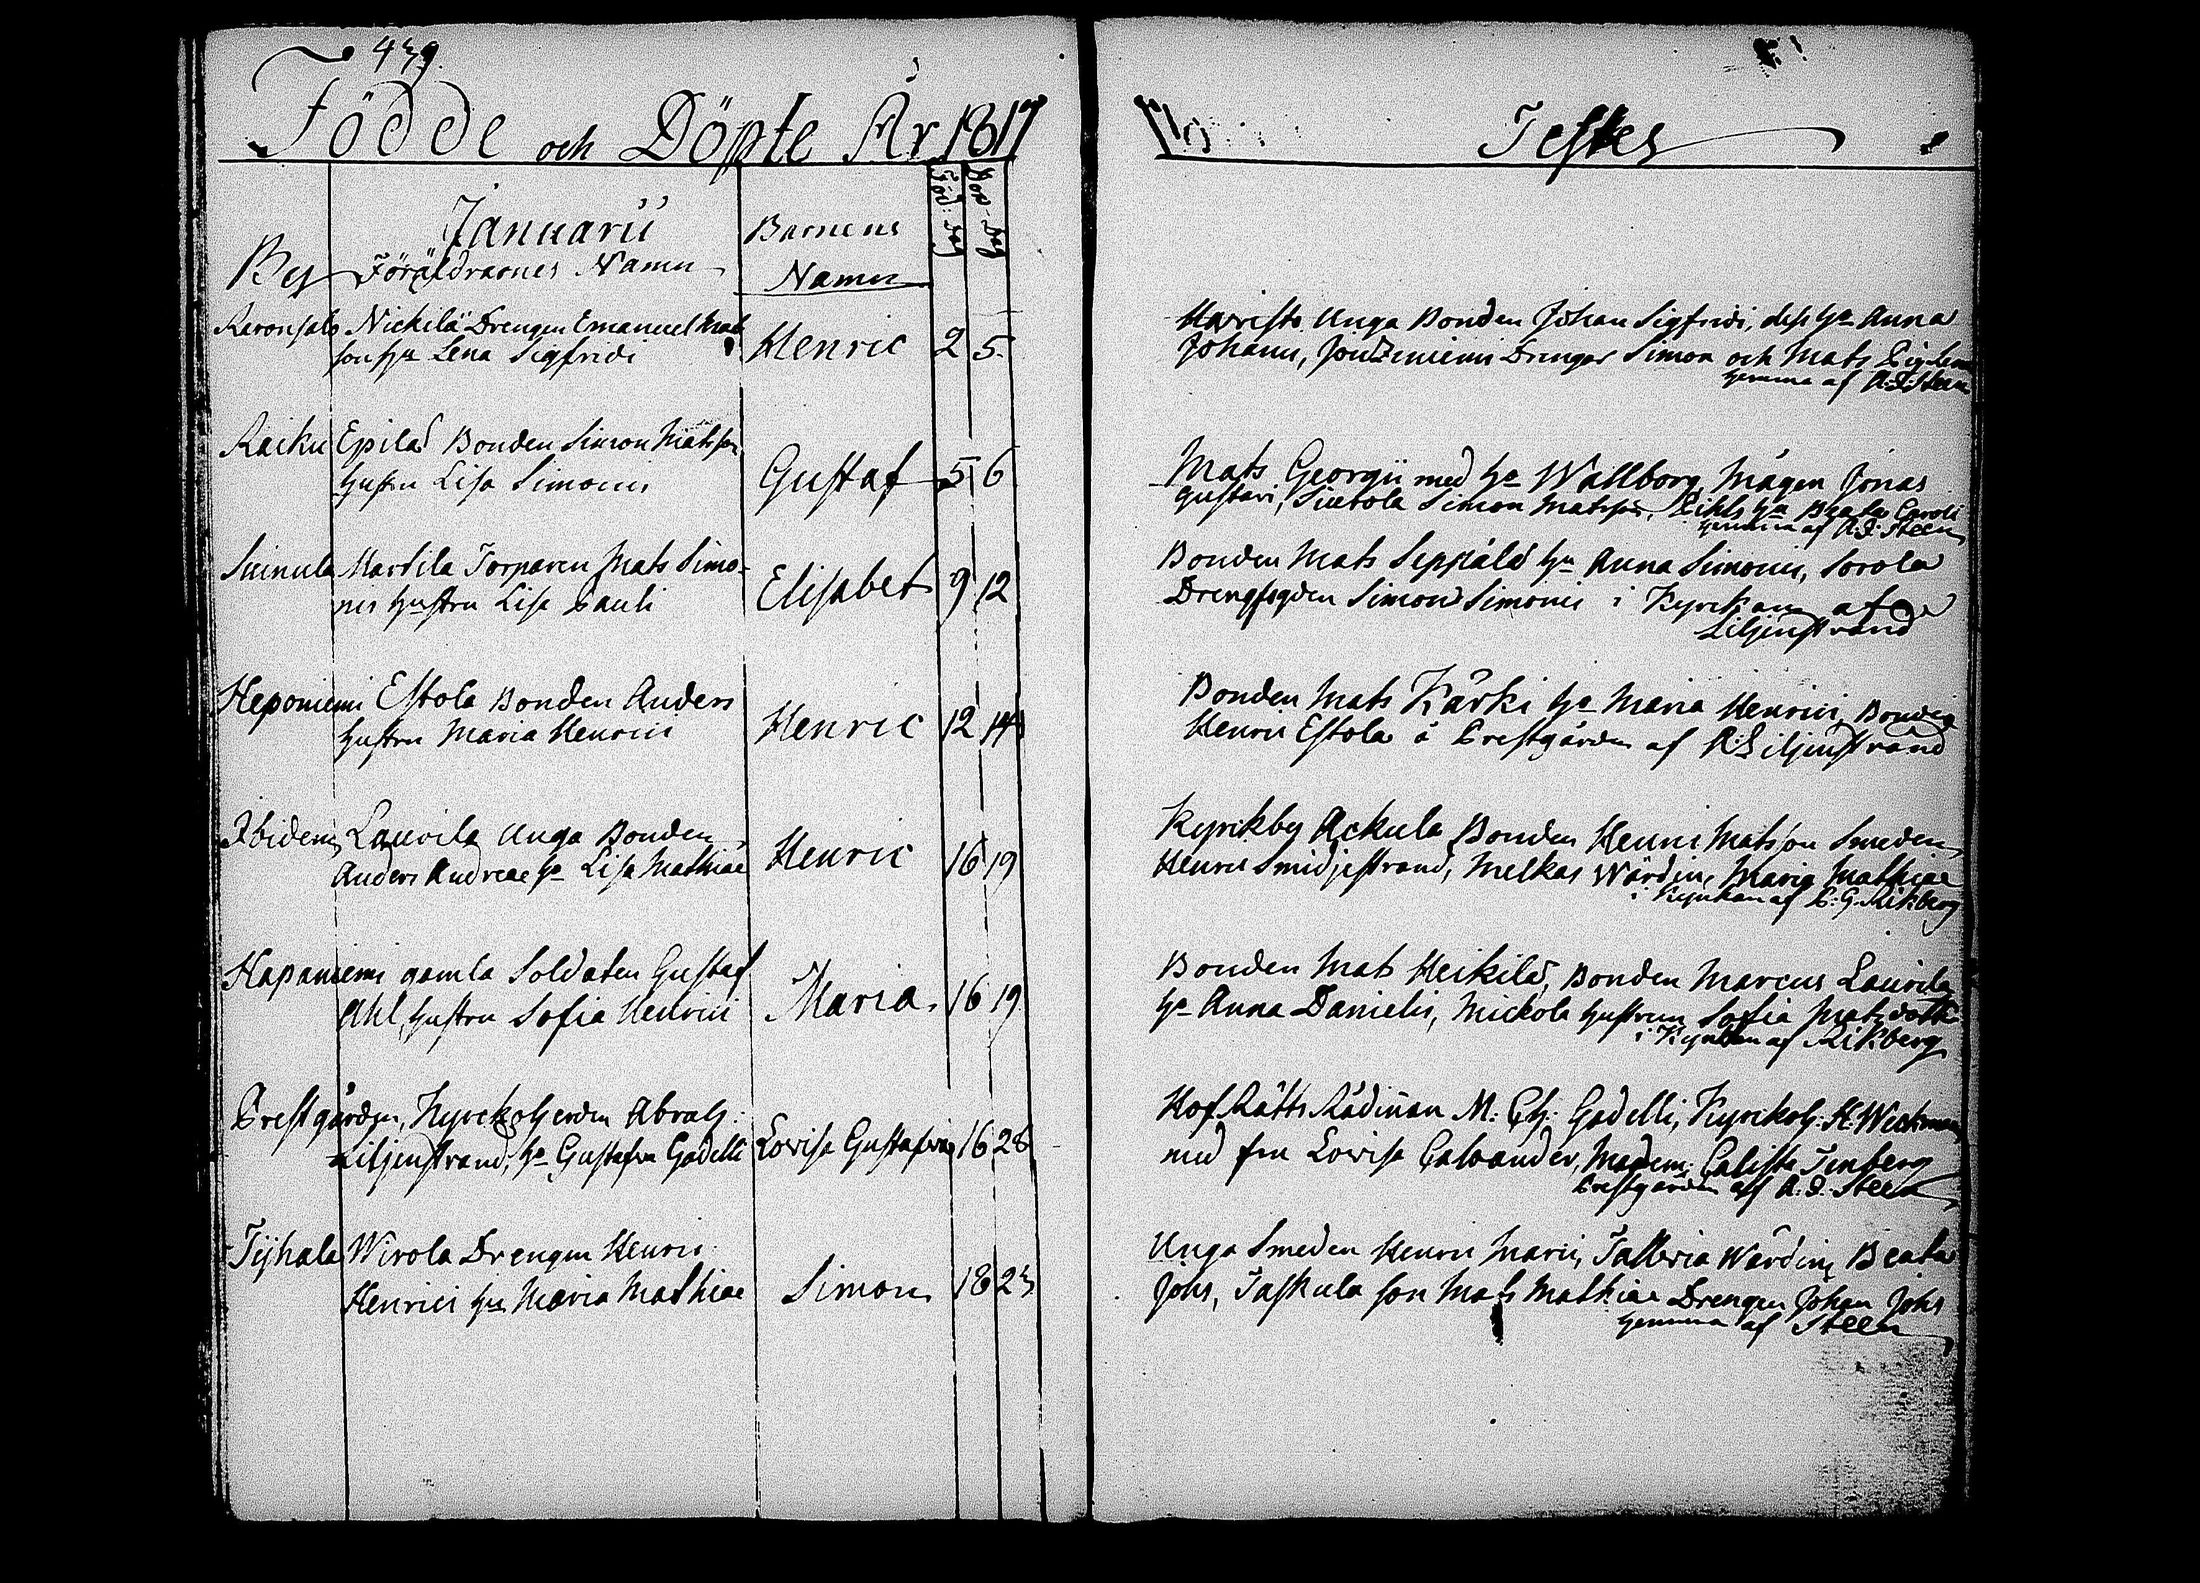 439.
Födde och Döpte År 1817
Januarii
Barnens
Född: dag
Döp-dag
By
Föräldrarnes Namn
Namn
Raronsalo Nickilä Drengen Emanuel Mats
son hu Lena Sigfridi
Henric 2 5.
Raiku Epilä Bonden Simon Matsson
hustru Lisa Simonis
Gustaf 5 6
Suinula Martila Torparen Mats Simo-
nis hustru Lisa Pauli
Elisabet 9 12
Heponiemi Estola Bonden Anders
hustru Maria Henrici
Henric 12 14
Ibidem Laurila Unga Bonden
Anders Andreae ha Lisa Mathiae
Henric 16 19
Hapaniemi gamla Soldaten Gustaf
Ahl, hustru Sofia Henrici
Maria 16 19
Prestgården, Kyrckoherden Abrah:
Liljenstrand, ha Gustafva Gadelli
Lovisa Gustafva 16 28
Tijhala Wirola Drengen Henric
Henrici hu Maria Mathiae
Simon 18 23
Testes
Unga Bonden Johan Sigfridi, dess ha Anna
Johanis, Drengar Simon och Mats
hemma af A.d. Steen
Mats Georgii med ha Wallborg, Mågen Jonas
Gustavi, Simon Matsson, ha Beata Caroli
hemma af A.d. Steen
Bonden Mats Seppälä hu Anna Simonis, Sorola
Drengfogden Simon Simonis i Kyrkan af
Liljenstrand
Bonden Mats Kärki ha Maria Henrici, Bonden
Henric Estola å Prestgården af A: Liljenstrand
Kyrkby Ackula Bonden Henric Matsson Smeden
Henric Smidjestrand, Melkas Wärdin, Maria Mathiae
i Kyrkan af P.G. Rikberg
Bonden Mats Heikilä, Bonden Marcus Laurila
ha Anna Danielis, Mickola hustrun Sofia Matsdotter
i Kyrkan af Rikberg
Hof Rätts Rådinnan M: Ch: Gadelli, Kyrkoh: H: Weckman
med fru Lovisa Calvander, Madem: Calista Tenberg
Prestgården af A.d. Steen
Unga Smeden Henric Marii, Wärdin Beata
Johs, Taskula son Mats Mathiae Drengen Johan Johs
hemma af Steen